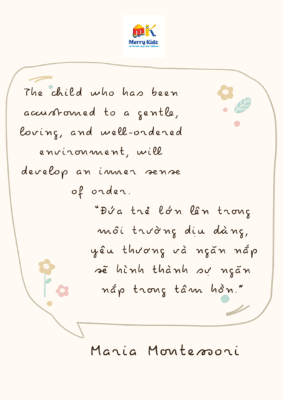 MK
Merry Kidz
The child who has been
accustomed to a gentle,
loving, and well-ordered
environment, will
develop an inner sense
of order.
"Đứa trẻ lớn lên trong
môi trường dịu dàng,
yêu thương và ngăn nắp
sẽ hình thành sự ngăn
nắp trong tâm hồn."
Maria Montessori